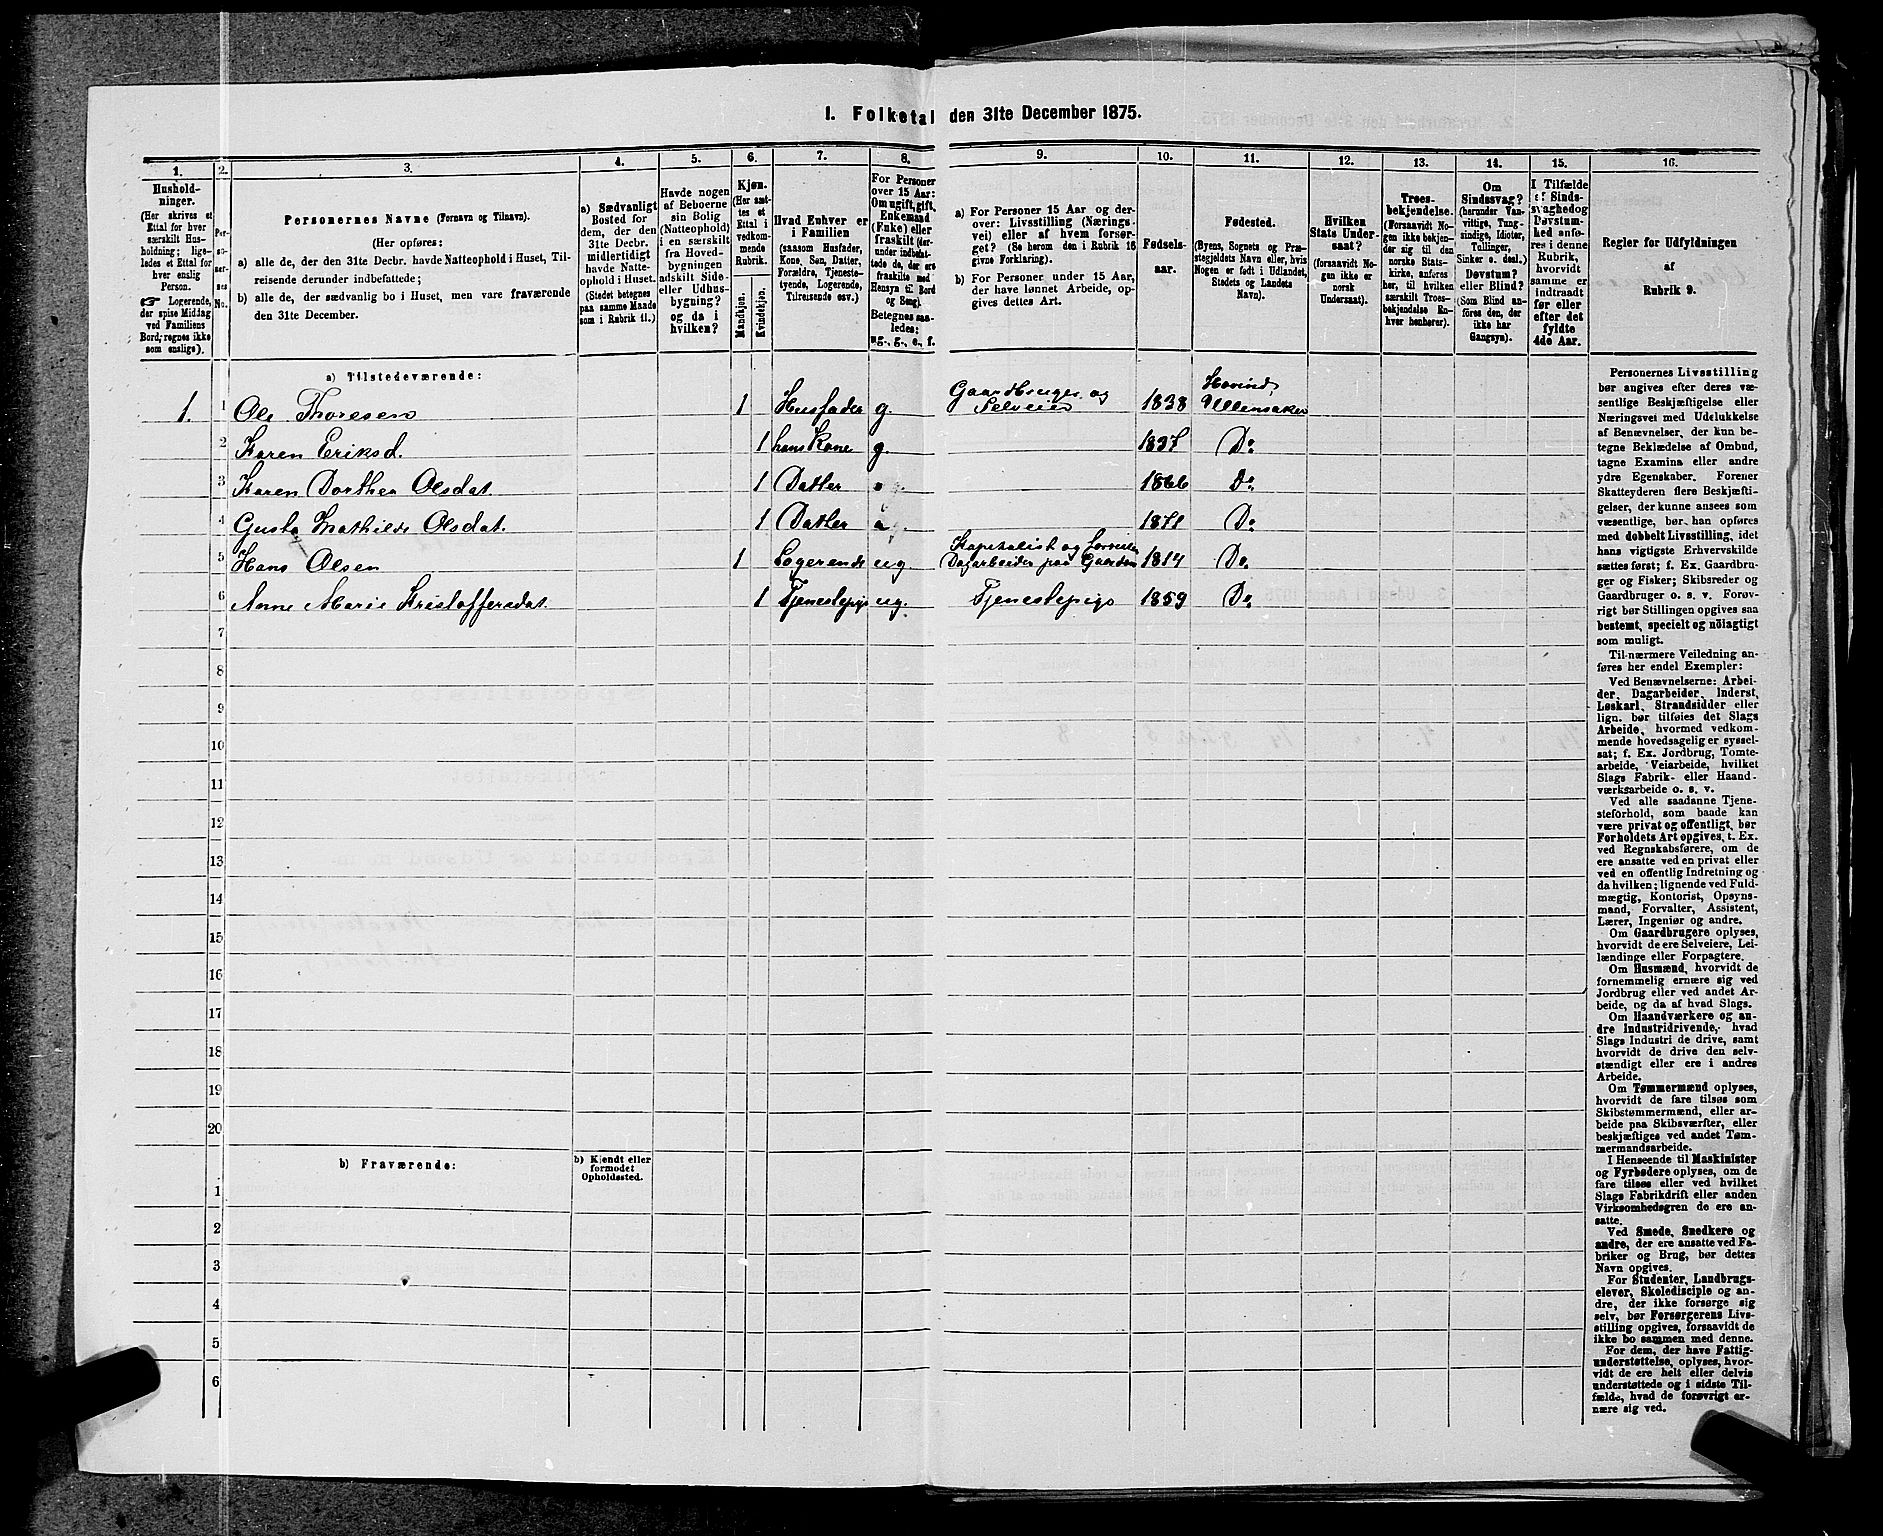 I. Folketal den 31te December 1875.
1.
2.
3.
4.
5.
6.
7.
8.
9.
10.
11.
12.
13.
14.
15.
16.
Hushold-
ninger.
(Her skrives et
Ettal for hver
særskilt Hus-
holdning; lige-
ledes et Ettal for
hver enslig
Person.
☞ Logerende,
der spise Middag
ved Familiens
Bord, regnes ikke
som enslige).
Per-
so-
ner-
nes
No.
Personernes Navne (Fornavn og Tilnavn).
(Her opføres:
a) alle de, der den 31te Decbr. havde Natteophold i Huset, Til-
reisende derunder indbefattede;
b) alle de, der sædvanlig bo i Huset, men vare fraværende
den 31te December.
a) Sædvanligt
Bosted for
dem, der den
31te Decbr.
midlertidigt
havde Natte-
ophold i Huset.
(Stedet betegnes
paa samme Maade
som i Rubrik 11.)
Havde nogen
af Beboerne
sin Bolig
(Natteophold)
i en særskilt
fra Hoved-
bygningen
adskilt Side-
eller Udhus-
bygning?
og da i
hvilken?
Kjøn.
(Her sæt-
tes et
Ettal i
vedkom-
mende
Rubrik.
Mandkjøn.
Kvindekjøn.
Hvad Enhver er
i Familien
(saasom Husfader,
Kone, Søn, Datter,
Forældre, Tjeneste-
tyende, Logerende,
Tilreisende osv.)
For Personer
over 15 Aar:
Om ugift, gift,
Enkemand
(Enke) eller
fraskilt (der-
under indbefat-
tede de, der ere
fraskilte med
Hensyn til Bord
og Seng).
Betegnes saa-
ledes:
ug., g., e., f.
a) For Personer 15 Aar og der-
over: Livsstilling (Nærings-
vei) eller af hvem forsør-
get? (Se herom den i Rubrik 16
givne Forklaring).
b) For Personer under 15 Aar,
der have lønnet Arbeide, op-
gives dettes Art.
Fødsels-
aar.
Fødested.
(Byens, Sognets og Præ-
stegjeldets Navn eller, hvis
Nogen er født i Udlandet,
Stedets og Landets
Navn).
Hvilken
Stats Under-
saat?
(forsaavidt No-
gen ikke er
norsk
Undersaat).
Troes-
bekjendelse.
(Forsaavidt No-
gen ikke bekjen-
der sig til den
norske Stats-
kirke, anføres
her, til hvilken
særskilt Troes-
bekjendelse En-
hver henhører).
Om
Sindssvag?
(herunder Van-
vittige, Tung-
sindige, Idioter,
Tullinger,
Sinker o. desl.)
Døvstum?
eller Blind?
(Som Blind an-
føres den, der
ikke har
Gangsyn).
I Tilfælde
af Sinds-
svaghed og
Døvstum-
hed anfø-
res i denne
Rubrik,
hvorvidt
samme er
indtraadt
før eller
efter det
fyldte
4de Aar.
Regler for Udfyldningen
af
Rubrik 9.
a) Tilstedeværende:
1. 1 Ole Thoresen 1 Husfader g. Gaardbruger og Selveier 1838 Hovind, Ullensaker
2 Karen Eriksd. 1 hans Kone g. 1837 Do
3 Karen Dorthea Olsdat. 1 Datter 1866 Do
4 Gusta Mathilde Olsdat. 1 Datter 1871 Do
5 Hans Olsen 1 Logerende ug. Kapitalist og Dagarbeider paa Gaarden 1814 Do
6 Anne Marie Kristoffersdat. 1 Tjenestepige ug. Tjenestepige 1859 Do
7
8
9
10
11
12
13
14
15
16
17
18
19
20
b) Fraværende:
b) Kjendt eller
formodet
Opholdssted.
1
2
3
4
5
6
Personernes Livsstilling
bør angives efter deres væ-
sentlige Beskjæftigelse eller
Næringsvei med Udelukkelse
af Benævnelser, der kun be-
tegne Beklædelse af Ombud,
tagne Examina eller andre
ydre Egenskaber. Forener
Skatteyderen flere Beskjæfti-
gelser, der kunne ansees som
væsentlige, bør han opføres
med dobbelt Livsstilling, idet
hans vigtigste Erhvervskilde
sættes først; f. Ex. Gaardbru-
ger og Fisker; Skibsreder og
Gaardbruger o. s. v. Forøv-
rigt bør Stillingen opgives saa
bestemt, specielt og nöiagtigt
som muligt.
Til nærmere Veiledning an-
føres her endel Exempler:
Ved Benævnelserne: Arbei-
der, Dagarbeider, Inderst,
Løskarl, Strandsidder eller
lign. bør tilføies det Slags
Arbeide, hvormed vedkom-
mende hovedsagelig er syssel-
sat; f. Ex. Jordbrug, Tomte-
arbeide, Veiarbeide, hvilket
Slags Fabrik- eller Haand-
værksarbeide o. s. v.
Ved alle saadanne Tjene-
steforhold, som baade kan
være privat og offentligt, bør
Forholdets Art opgives, t. Ex.
ved Regnskabsførere, om de
ere ansatte ved en privat eller
ved en offentlig Indretning og
da hvilken; lignende ved Fuld-
mægtig, Kontorist, Opsyns-
mand, Forvalter, Assistent,
Lærer, Ingeniør og andre.
Om Gaardbrugere oplyses,
hvorvidt de ere Selveiere, Lei-
lændinge eller Forpagtere.
Om Husmænd, hvorvidt de
fornemmelig ernære sig ved
Jordbrug eller ved andet Ar-
beide, og da af hvad Slags.
Om Haandværkere og an-
dre Industridrivende, hvad
Slags Industri de drive, samt
hvorvidt de drive den selv-
stændigt eller ere i andres
Arbeide.
Om Tømmermænd oplyses,
hvorvidt de fare tilsøs som
Skibstømmermænd, eller ar-
beide paa Skibsværfter, eller
beskjæftiges ved andet Tøm-
mermandsarbeide.
I Henseende til Maskinister
og Fyrbødere oplyses, om de
fare tilsøs eller ved hvilket
Slags Fabrikdrift eller anden
Virksomhedsgren de ere an-
satte.
Ved Smede, Snedkere og
andre, der ere ansatte ved Fa-
briker og Brug, bør dettes
Navn opgives.
For Studenter, Landbrugs-
elever, Skoledisciple og an-
dre, der ikke forsørge sig
selv, bør Forsørgerens Livs-
stilling opgives, forsaavidt de
ikke bo sammen med denne.
For dem, der have Fattig-
understøttelse, oplyses, hvor-
vidt de ere helt eller delvis
understøttede og i sidste Til-
fælde, hvad de forøvrigt er-
nære sig ved.